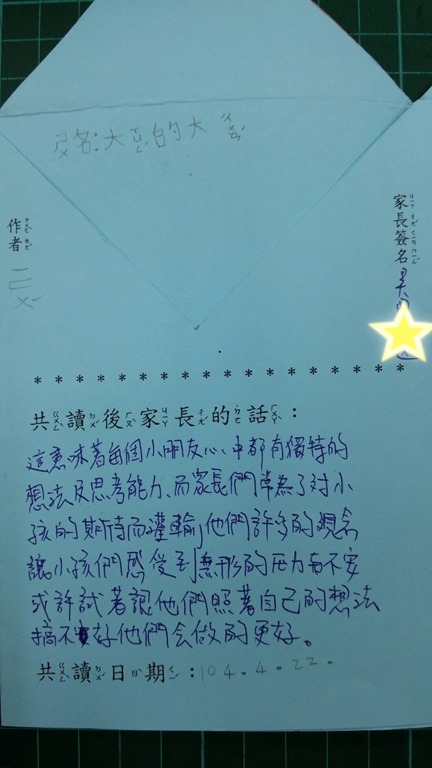 名:大豆的大
作者
家長簽名
* * * * * * * * * * * * * * * * * *
共讀後家長的話:
這意味著每個小朋友心中都有獨特的
想法及思考能力、而家長們常為了對小
孩的期待而灌輸他們許多的觀念
讓小孩們感受到無形的压力与不安
或許試著讓他們照著自己的想法
搞不好他們会做的更好。
共讀日期:104.4.22.